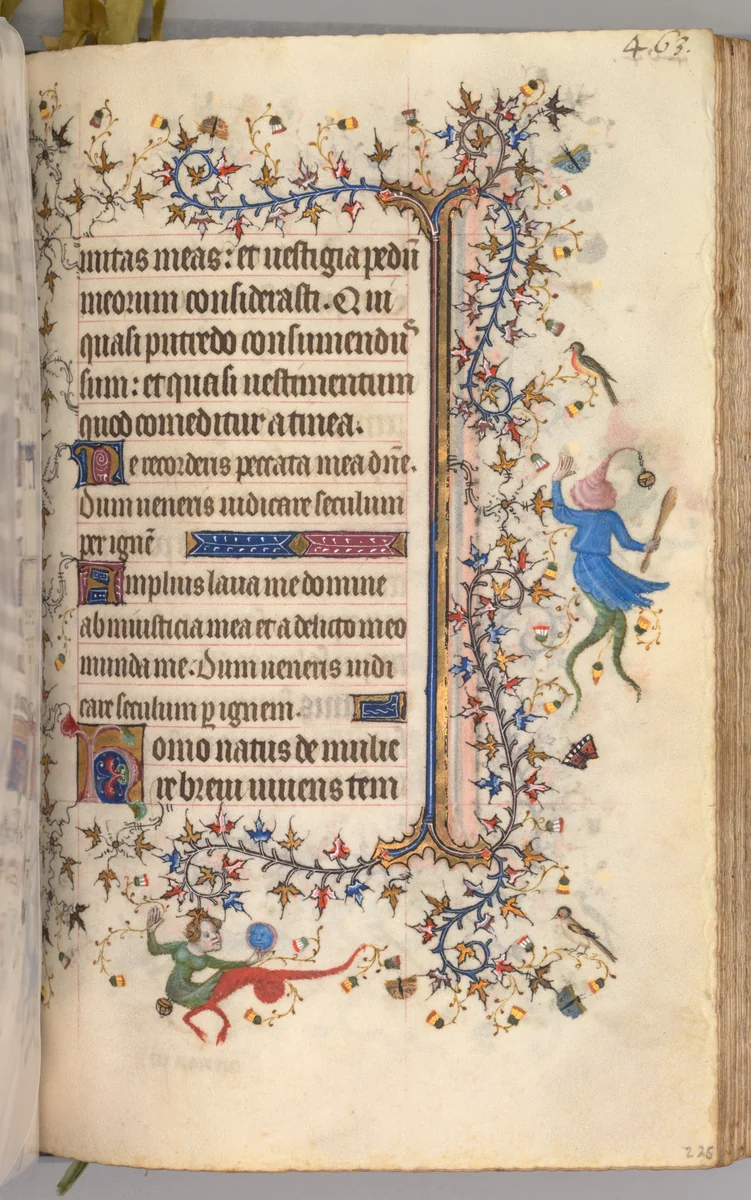 463.
mitas meas: et uestigia pedū
meorum considerasti. Qui
quasi putredo consumendus
sum: et quasi uestimentum
quod comeditur a tinea.
Ne recorderis peccata mea dñe.
Dum ueneris iudicare seculum
per ignē
Amplius laua me domine
ab iniusticia mea et a delicto meo
munda me. Dum ueneris iudi
care seculum p ignem.
Homo natus de mulie
re breui uiuens tem
225